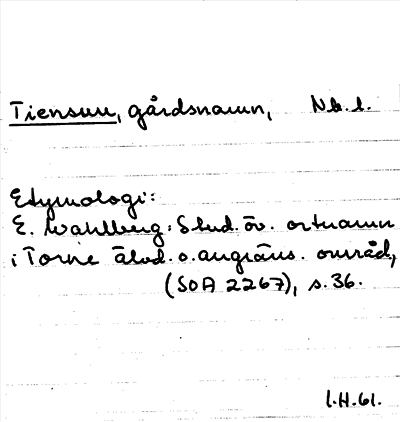 Tiensuu, gårdsnamn, Nb. l.
Etymologi:
E. Wahlberg: Stud. öv. ortnamn
i Torne älvd. o. angräns. områd,
(SOA 2267), s. 36.
l.H.61.